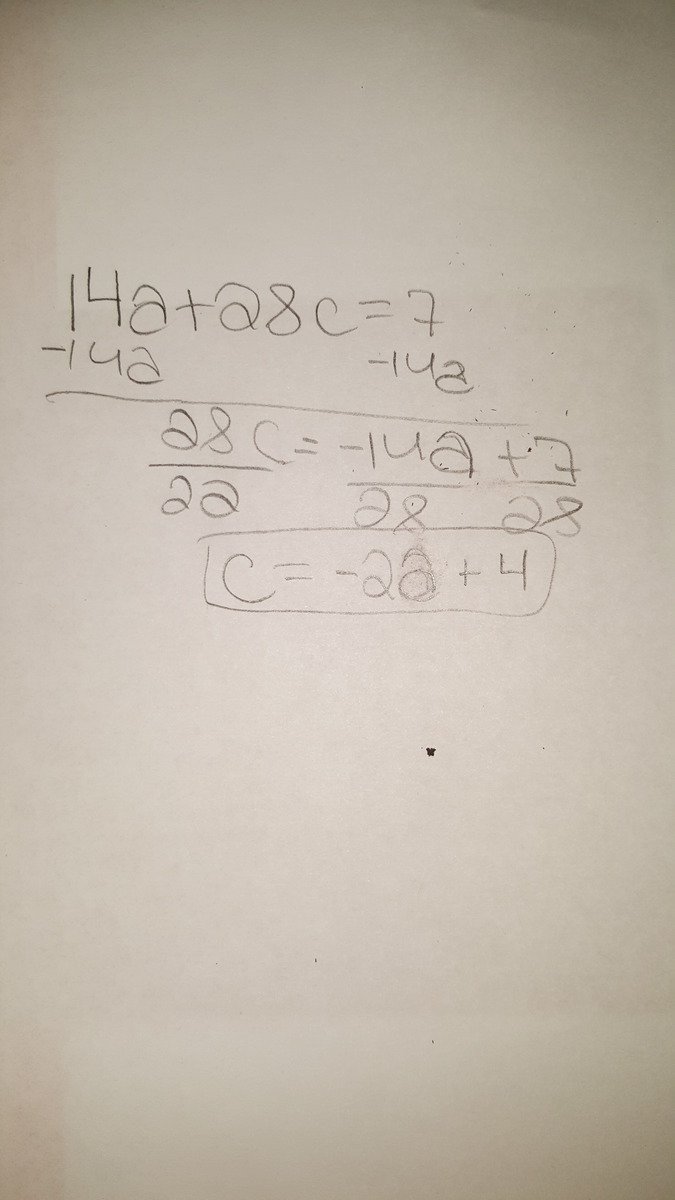 14a+28c=7
-14a -14a
28c=-14a+7
22 28 28
c=-2a+4